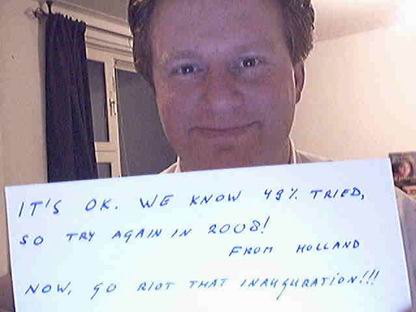 IT'S OK. WE KNOW 49% TRIED,
SO TRY AGAIN IN 2008!
FROM HOLLAND
NOW, GO RIOT THAT INAUGURATION!!!